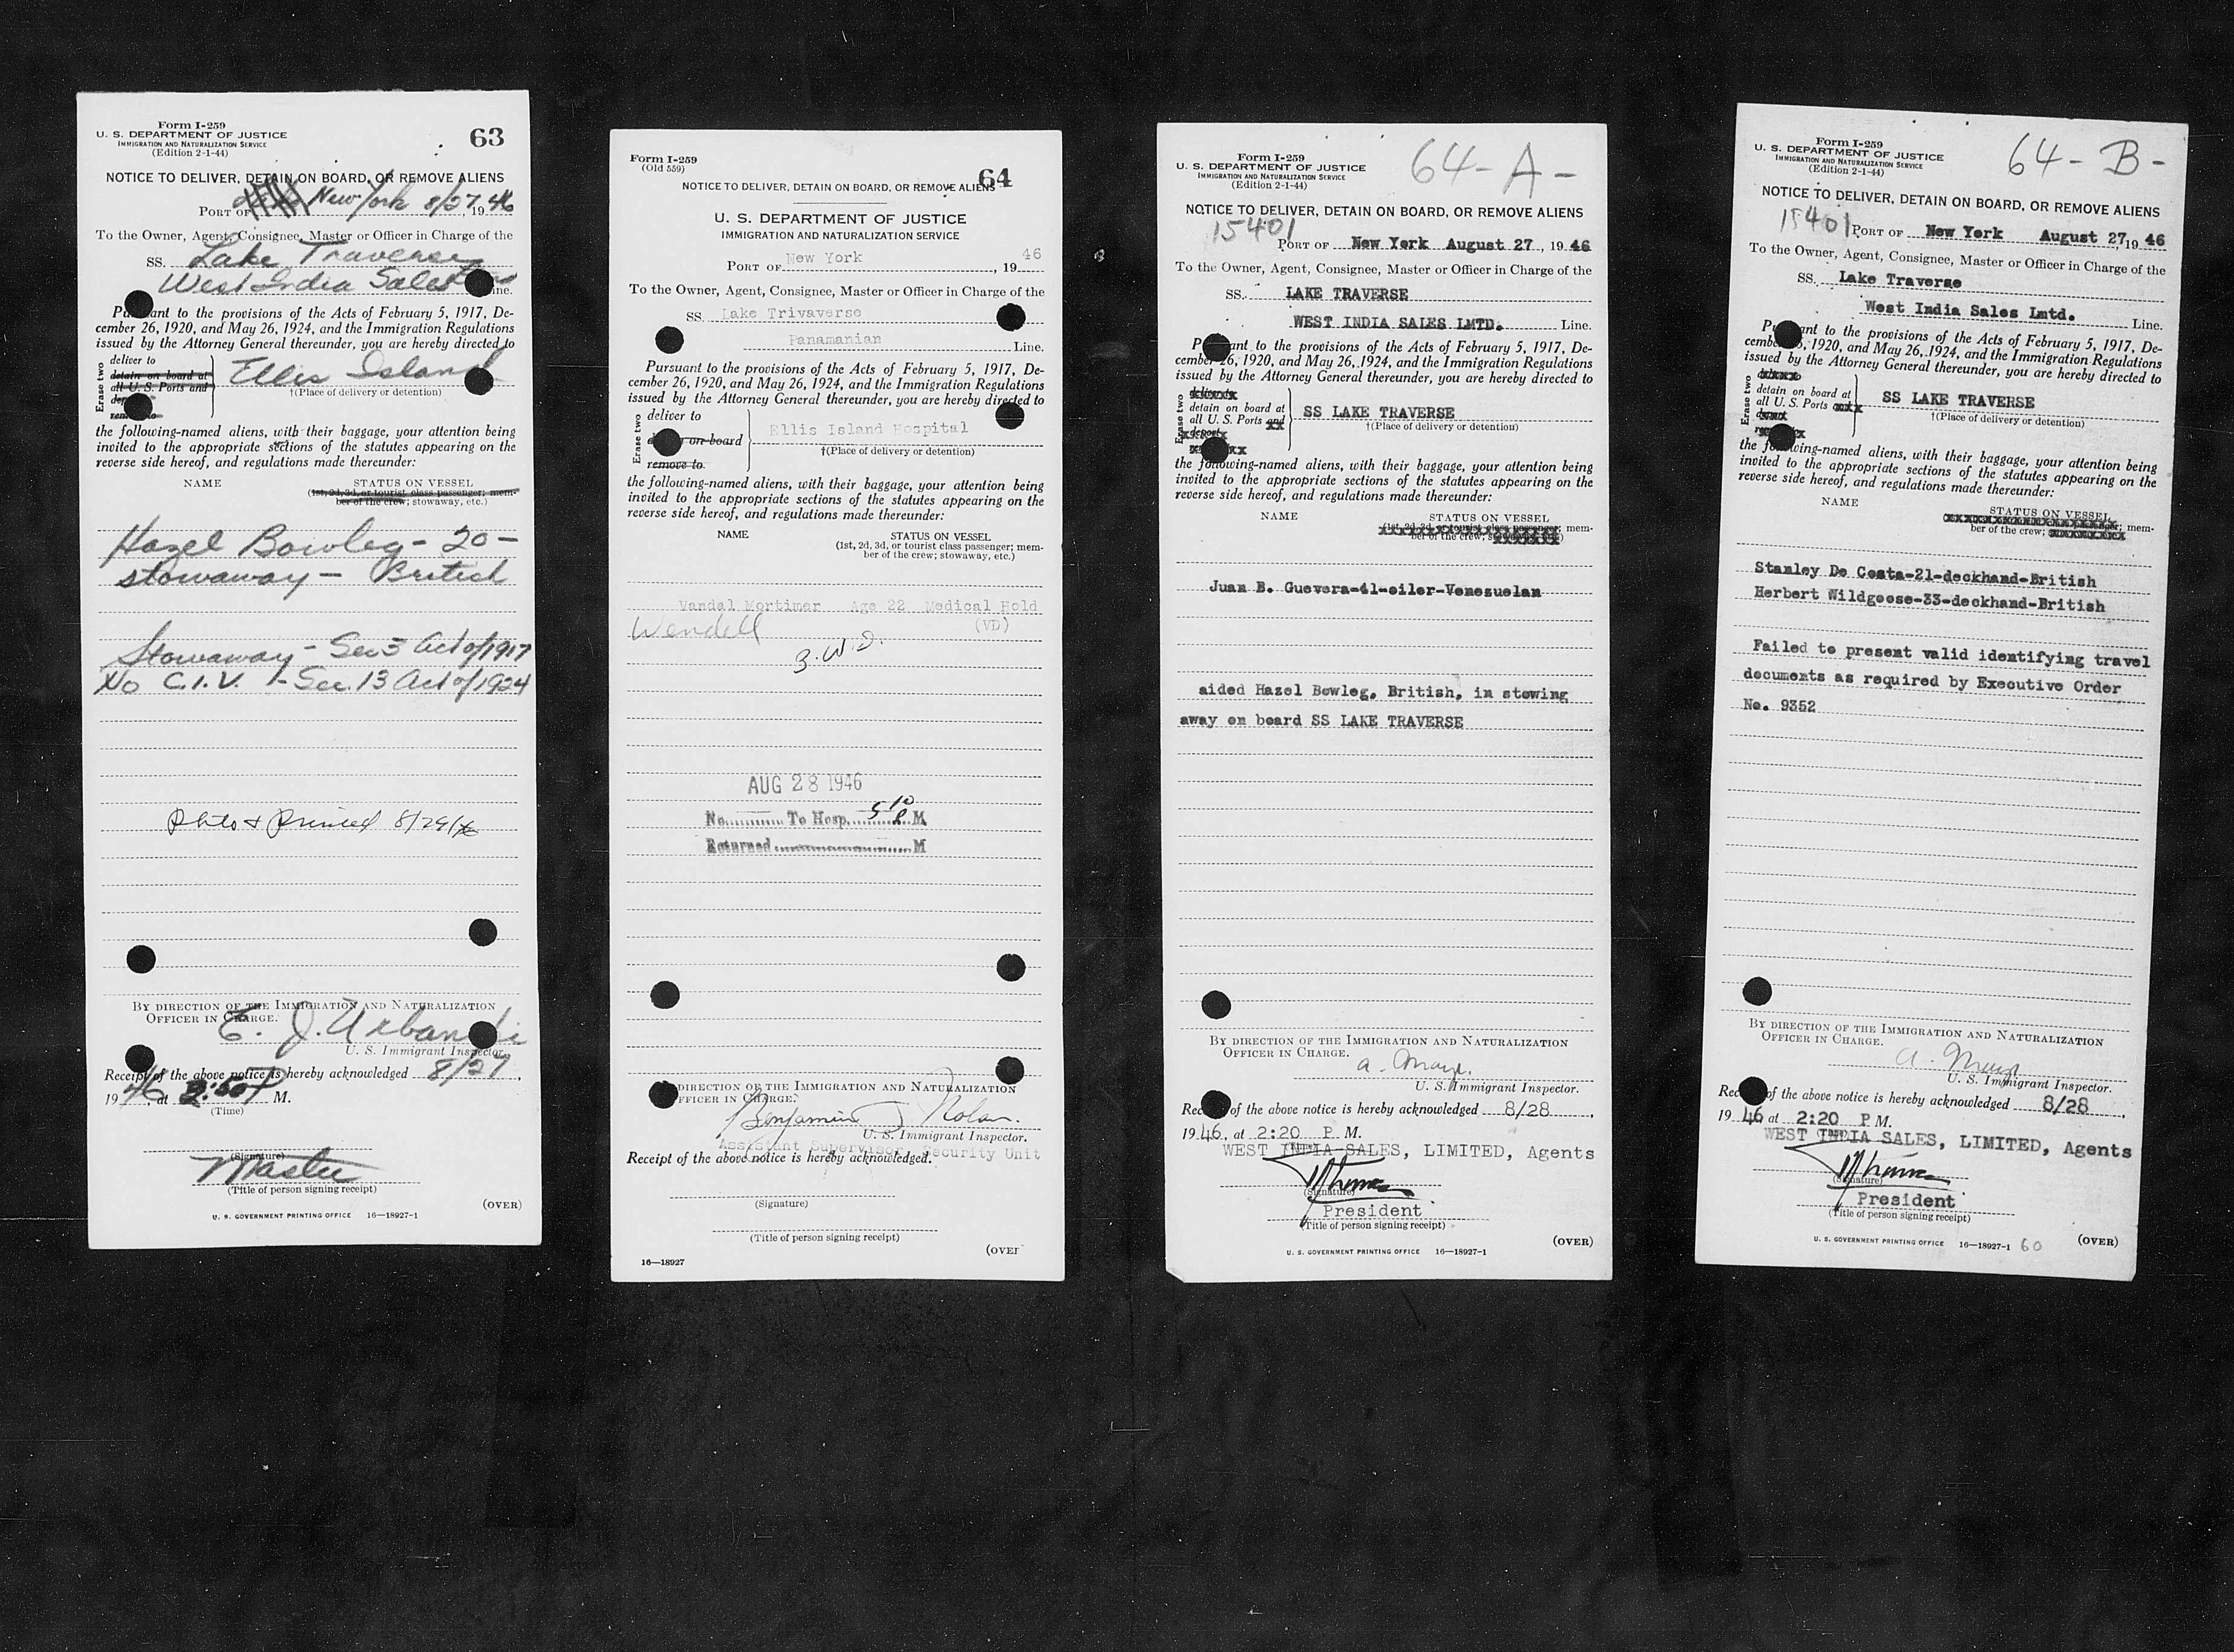 Form I-259
U. S. DEPARTMENT OF JUSTICE
IMMIGRATION AND NATURALIZATION SERVICE
(Edition 2-1-44)
63
NOTICE TO DELIVER, DETAIN ON BOARD, OR REMOVE ALIENS
PORT OF New York 8/27, 1946
To the Owner, Agent, Consignee, Master or Officer in Charge of the
SS. Lake Traverse
West India Sales Line.
Pursuant to the provisions of the Acts of February 5, 1917, De-
cember 26, 1920, and May 26, 1924, and the Immigration Regulations
issued by the Attorney General thereunder, you are hereby directed to
Erase two
deliver to
detain on board at
all U. S. Ports and
Ellis Island
†(Place of delivery or detention)
the following-named aliens, with their baggage, your attention being
invited to the appropriate sections of the statutes appearing on the
reverse side hereof, and regulations made thereunder:
NAME STATUS ON VESSEL
(1st, 2d, 3d, or tourist class passenger; mem-
ber of the crew; stowaway, etc.)
Hazel Bowleg - 20 -
stowaway - British
Stowaway - Sec 3 Act of 1917
No C.I.V. - Sec. 13 Act of 1924
Photo & Printed 8/29/46
BY DIRECTION OF THE IMMIGRATION AND NATURALIZATION
OFFICER IN CHARGE.
E. J. Urban
U. S. Immigrant Inspector.
Receipt of the above notice is hereby acknowledged 8/27,
1946, at 2:50 P M.
(Time)
(Signature)
Master
(Title of person signing receipt)
(OVER)
U. S. GOVERNMENT PRINTING OFFICE 16—18927-1
Form I-259
(Old 559)
64
NOTICE TO DELIVER, DETAIN ON BOARD, OR REMOVE ALIENS
U. S. DEPARTMENT OF JUSTICE
IMMIGRATION AND NATURALIZATION SERVICE
PORT OF New York, 19 46
To the Owner, Agent, Consignee, Master or Officer in Charge of the
SS. Lake Trivaverse
Panamanian Line.
Pursuant to the provisions of the Acts of February 5, 1917, De-
cember 26, 1920, and May 26, 1924, and the Immigration Regulations
issued by the Attorney General thereunder, you are hereby directed to
Erase two
deliver to
on board
remove to
Ellis Island Hospital
†(Place of delivery or detention)
the following-named aliens, with their baggage, your attention being
invited to the appropriate sections of the statutes appearing on the
reverse side hereof, and regulations made thereunder:
NAME STATUS ON VESSEL
(1st, 2d, 3d, or tourist class passenger; mem-
ber of the crew; stowaway, etc.)
Vandal Mortimer Age 22 Medical Hold
Wendell (VD)
B.W.I.
AUG 28 1946
No. To Hosp. 5 10 P M
Returned M
BY DIRECTION OF THE IMMIGRATION AND NATURALIZATION
OFFICER IN CHARGE.
Benjamin J Nolan
U. S. Immigrant Inspector.
Assistant Supervisor Security Unit
Receipt of the above notice is hereby acknowledged.
(Signature)
(Title of person signing receipt)
(OVER
16—18927
Form I-259
U. S. DEPARTMENT OF JUSTICE
IMMIGRATION AND NATURALIZATION SERVICE
(Edition 2-1-44)
64-A-
NOTICE TO DELIVER, DETAIN ON BOARD, OR REMOVE ALIENS
15401
PORT OF New York August 27, 1946
To the Owner, Agent, Consignee, Master or Officer in Charge of the
SS. LAKE TRAVERSE
WEST INDIA SALES LMTD. Line.
Pursuant to the provisions of the Acts of February 5, 1917, De-
cember 26, 1920, and May 26, 1924, and the Immigration Regulations
issued by the Attorney General thereunder, you are hereby directed to
Erase two
detain on board at
all U. S. Ports and
deport
SS LAKE TRAVERSE
†(Place of delivery or detention)
the following-named aliens, with their baggage, your attention being
invited to the appropriate sections of the statutes appearing on the
reverse side hereof, and regulations made thereunder:
NAME STATUS ON VESSEL
(1st, 2d, 3d, or tourist class passenger; mem-
ber of the crew;
Juan B. Guevera-41-oiler-Venezuelan
aided Hazel Bowleg, British, in stowing
away on board SS LAKE TRAVERSE
BY DIRECTION OF THE IMMIGRATION AND NATURALIZATION
OFFICER IN CHARGE.
U. S. Immigrant Inspector.
Receipt of the above notice is hereby acknowledged 8/28,
1946, at 2:20 P M.
WEST INDIA SALES, LIMITED, Agents
(Signature)
President
(Title of person signing receipt)
(OVER)
U. S. GOVERNMENT PRINTING OFFICE 16—18927-1
Form I-259
U. S. DEPARTMENT OF JUSTICE
IMMIGRATION AND NATURALIZATION SERVICE
(Edition 2-1-44)
64-B-
NOTICE TO DELIVER, DETAIN ON BOARD, OR REMOVE ALIENS
15401
PORT OF New York August 27, 1946
To the Owner, Agent, Consignee, Master or Officer in Charge of the
SS. Lake Traverse
West India Sales Lmtd. Line.
Pursuant to the provisions of the Acts of February 5, 1917, De-
cember 26, 1920, and May 26, 1924, and the Immigration Regulations
issued by the Attorney General thereunder, you are hereby directed to
Erase two
detain on board at
all U. S. Ports
SS LAKE TRAVERSE
†(Place of delivery or detention)
the following-named aliens, with their baggage, your attention being
invited to the appropriate sections of the statutes appearing on the
reverse side hereof, and regulations made thereunder:
NAME STATUS ON VESSEL
mem-
ber of the crew;
Stanley De Costa-21-deckhand-British
Herbert Wildgoose-33-deckhand-British
Failed to present valid identifying travel
documents as required by Executive Order
No. 9352
BY DIRECTION OF THE IMMIGRATION AND NATURALIZATION
OFFICER IN CHARGE.
U. S. Immigrant Inspector.
Receipt of the above notice is hereby acknowledged 8/28,
1946 at 2:20 P M.
WEST INDIA SALES, LIMITED, Agents
(Signature)
President
(Title of person signing receipt)
(OVER)
U. S. GOVERNMENT PRINTING OFFICE 16—18927-1 60